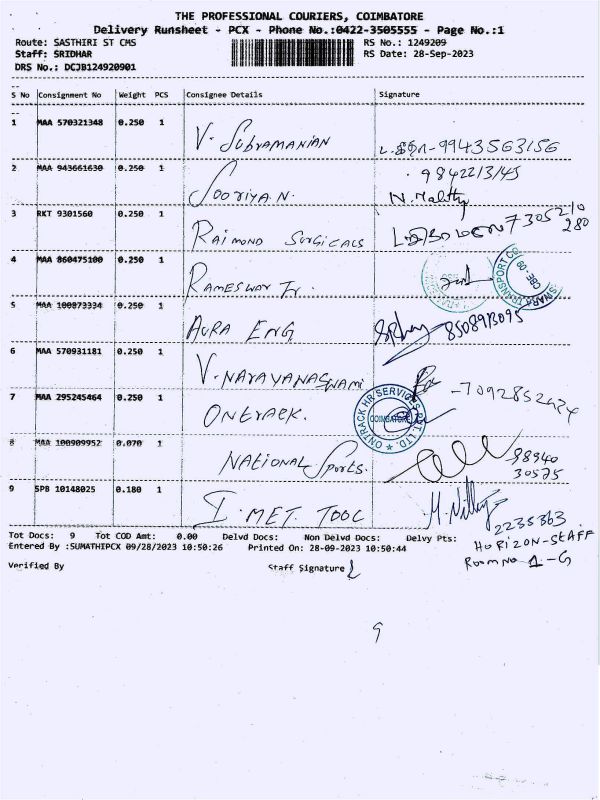 THE PROFESSIONAL COURIERS, COIMBATORE
Delivery Runsheet - PCX - Phone No.:0422-3505555 - Page No.:1
Route: SASTHIRI ST CMS RS No.: 1249209
Staff: SRIDHAR RS Date: 28-Sep-2023
DRS No.: DCJB124920901
S No Consignment No Weight PCS Consignee Details Signature
1 MAA 570321348 0.250 1
V. Subramanian 9943563156
2 MAA 943661630 0.250 1 9842213145
Sooriya N. N. Malathy
3 RKT 9301560 0.250 1 7305210
280
Raimond Surgicals
4 MAA 860475100 0.250 1
SWARA TRANSPORT CO CBE-09
Rameswar Tr.
5 MAA 100873334 0.250 1
AURA ENG 8508913095
6 MAA 570931181 0.250 1
V. NARAYANASWAMI
7 MAA 295245464 0.250 1
ONTRACK HR SERVICES PVT. LTD. COIMBATORE
ONTRACK.
8 MAA 100909952 0.070 1
NATIONAL Sports. 98940
30575
9 SPB 10148025 0.180 1
I. MET. TOOL
2235363
HORIZON-STAFF
Room No 1-G
Tot Docs: 9 Tot COD Amt: 0.00 Delvd Docs: Non Delvd Docs: Delvy Pts:
Entered By :SUMATHIPCX 09/28/2023 10:50:26 Printed On: 28-09-2023 10:50:44
Verified By Staff Signature
9